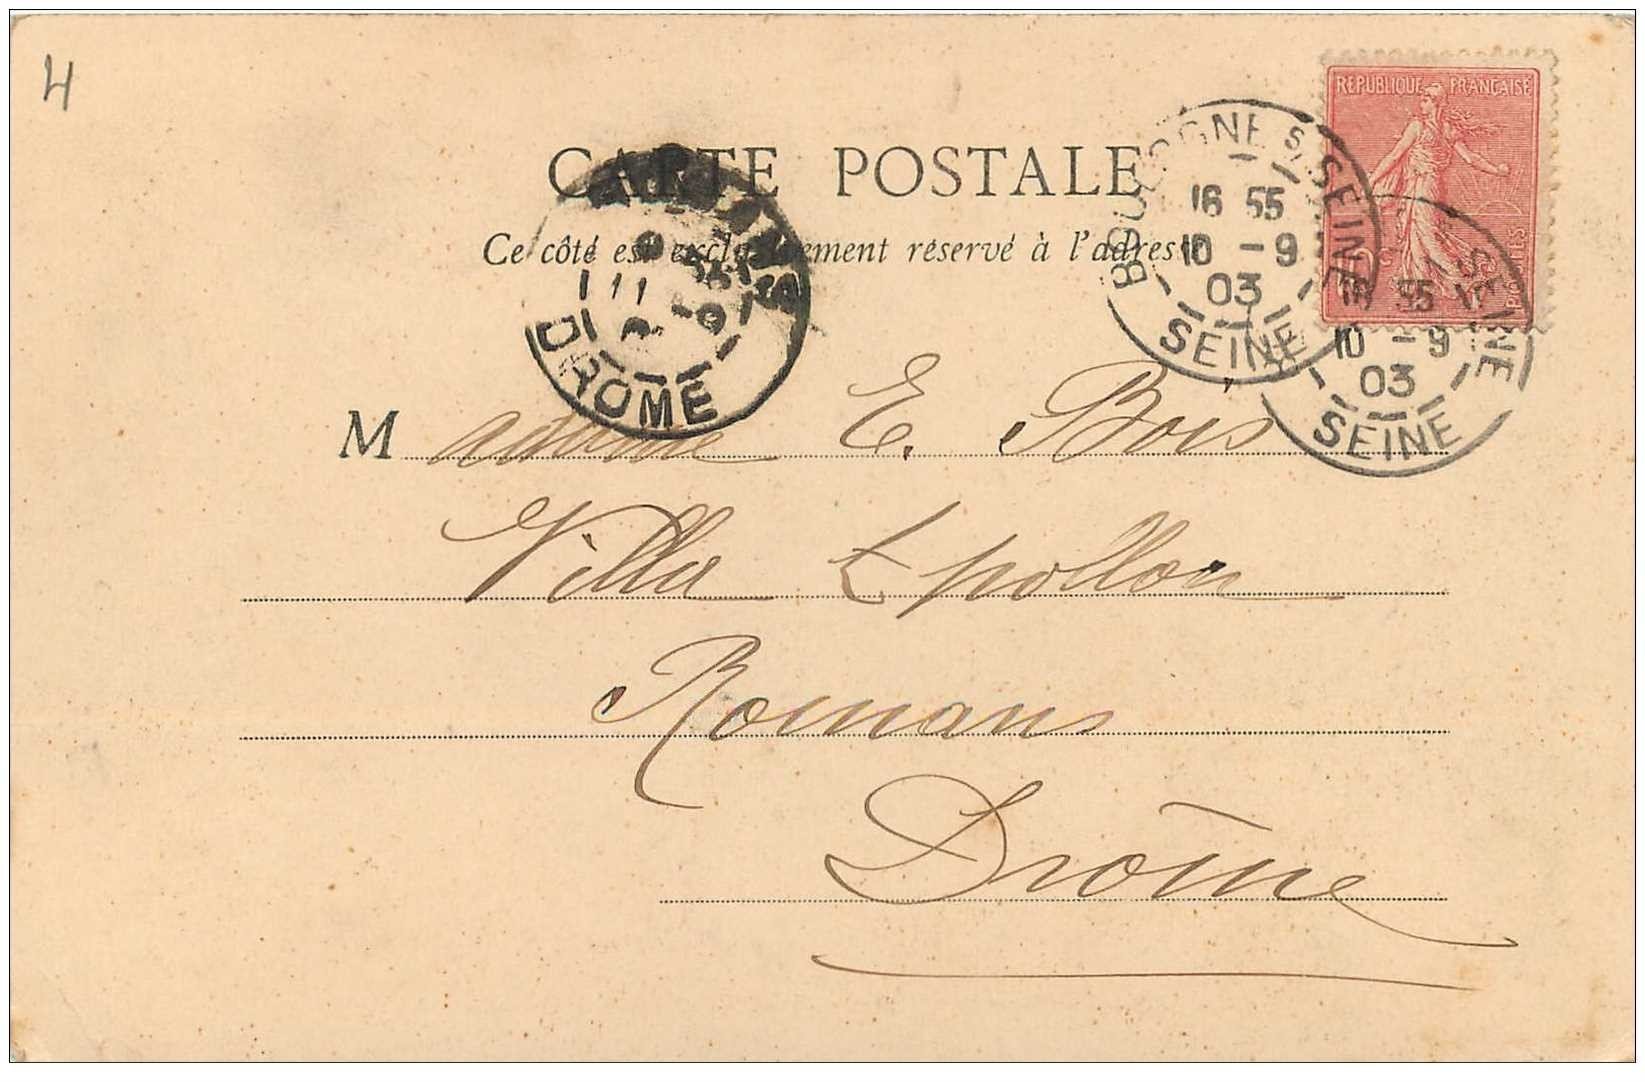 4
REPUBLIQUE FRANÇAISE
CARTE POSTALE
Ce côté est exclusivement réservé à l'adresse
BOULOGNE S/ SEINE
16 55
10 - 9
03
SEINE
16 55
10 - 9
03
SEINE
DROME
Madame E. Bois
Villa Apollon
Romans
Drôme